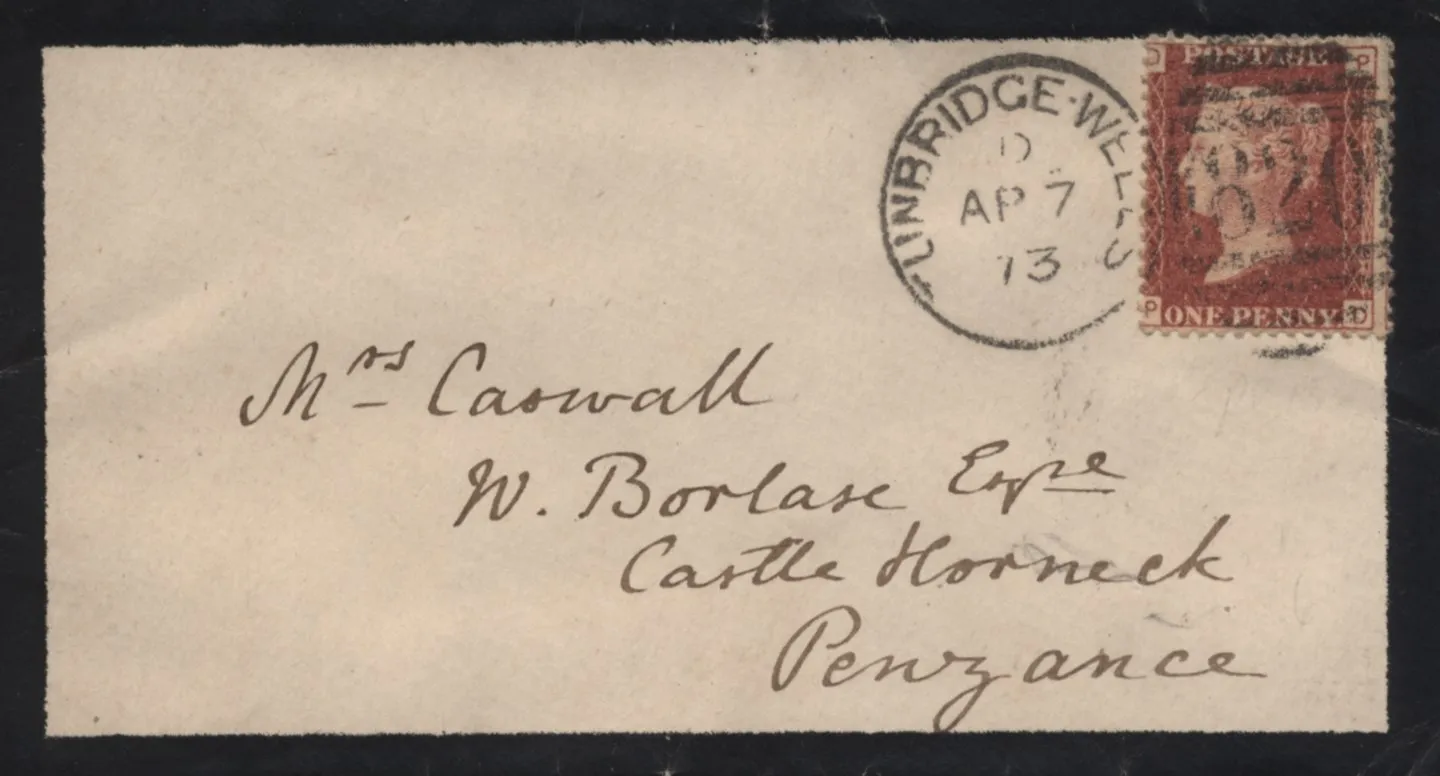 TUNBRIDGE·WELLS
D
AP 7
73
D POSTAGE P
P ONE PENNY D
Mrs Caswall
W. Borlase Esqre
Castle Horneck
Penzance